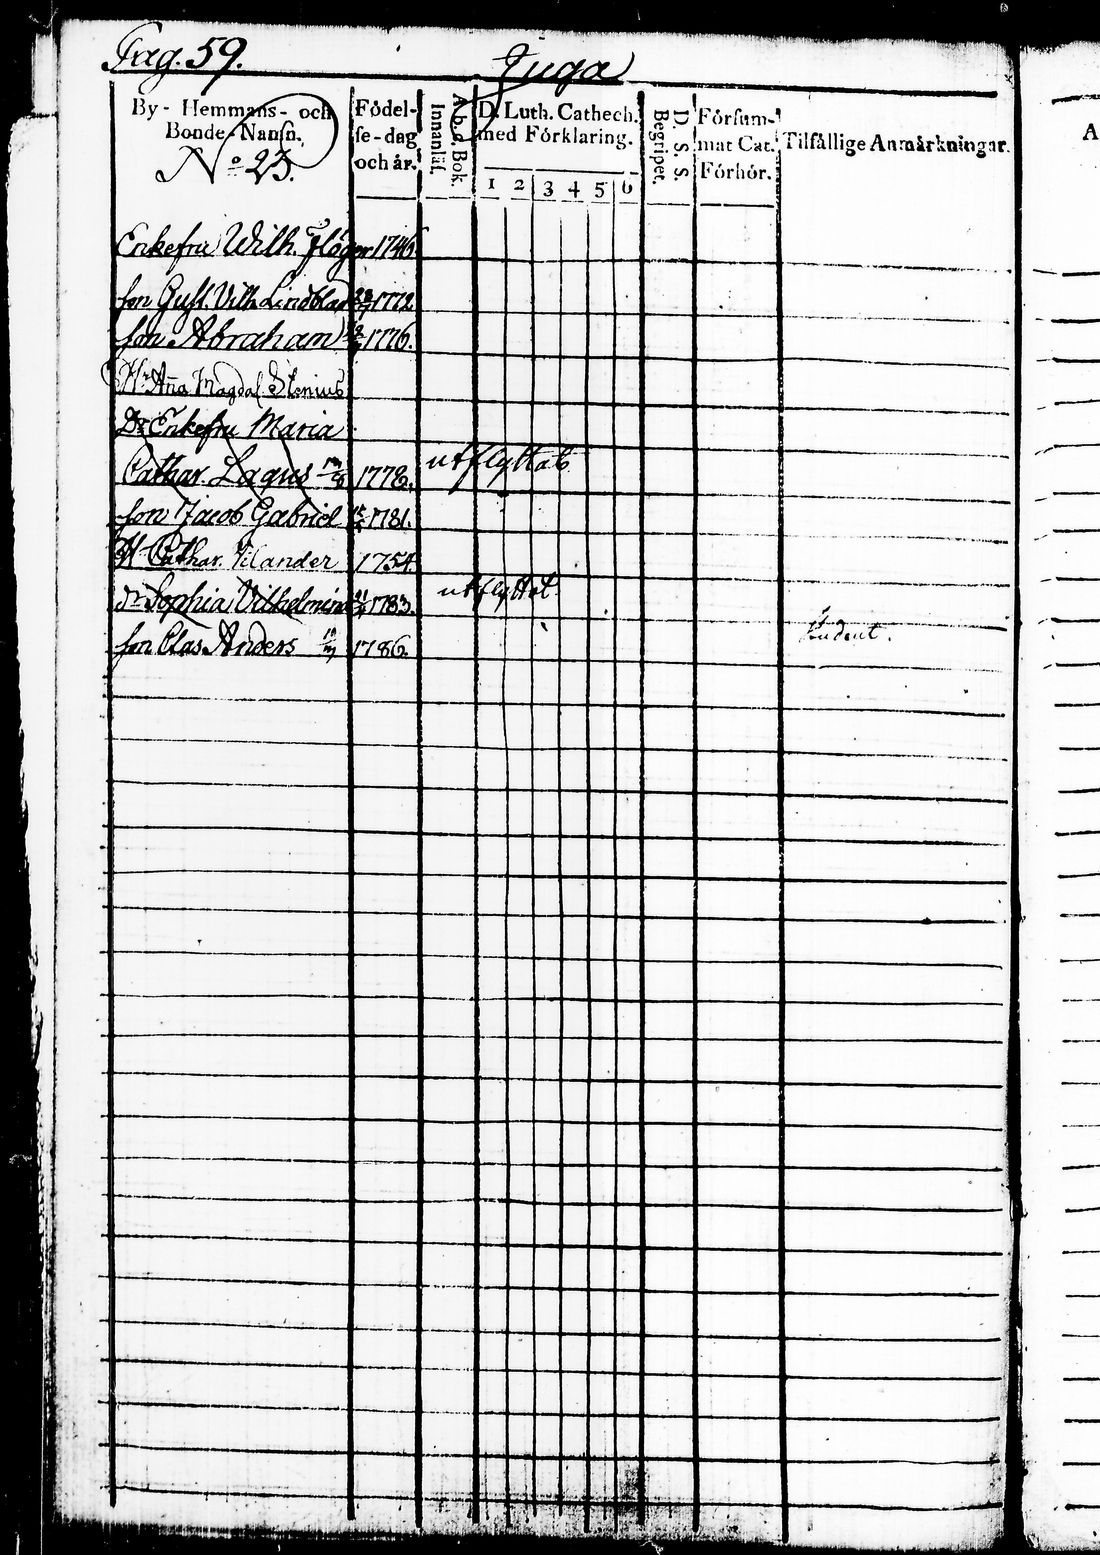 Pag. 59. Juga
By - Hemmans - och Bonde-Namn. Födel-se-dag och år. A.b.c. Bok. Innanläs. D. Luth. Cathech. med Förklaring. D. S. S. Begripet. Försum-mat Cat. Förhör. Tilfällige Anmärkningar.
No 23.
1 2 3 4 5 6
Enkefru Wilh. 1746
son Gust. Vilh. Lindblad 1772
son Abraham 1776.
Hr Aña Magdal. Stenius
Dr Enkefru Maria
Cathar. Lagus 1778. utflyttat
son Jacob Gabriel 1781.
H Cathar. Vilander 1754
dr Sophia Vilhelmina 1783. utflyttat
son Clas Anders 19/7 1786. Student.
A